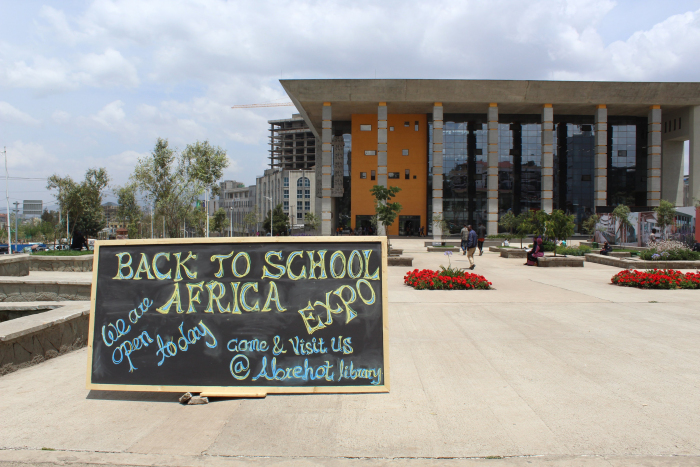 BACK TO SCHOOL
AFRICA
EXPO
We are
open today
come & Visit US
@ Abrehot library